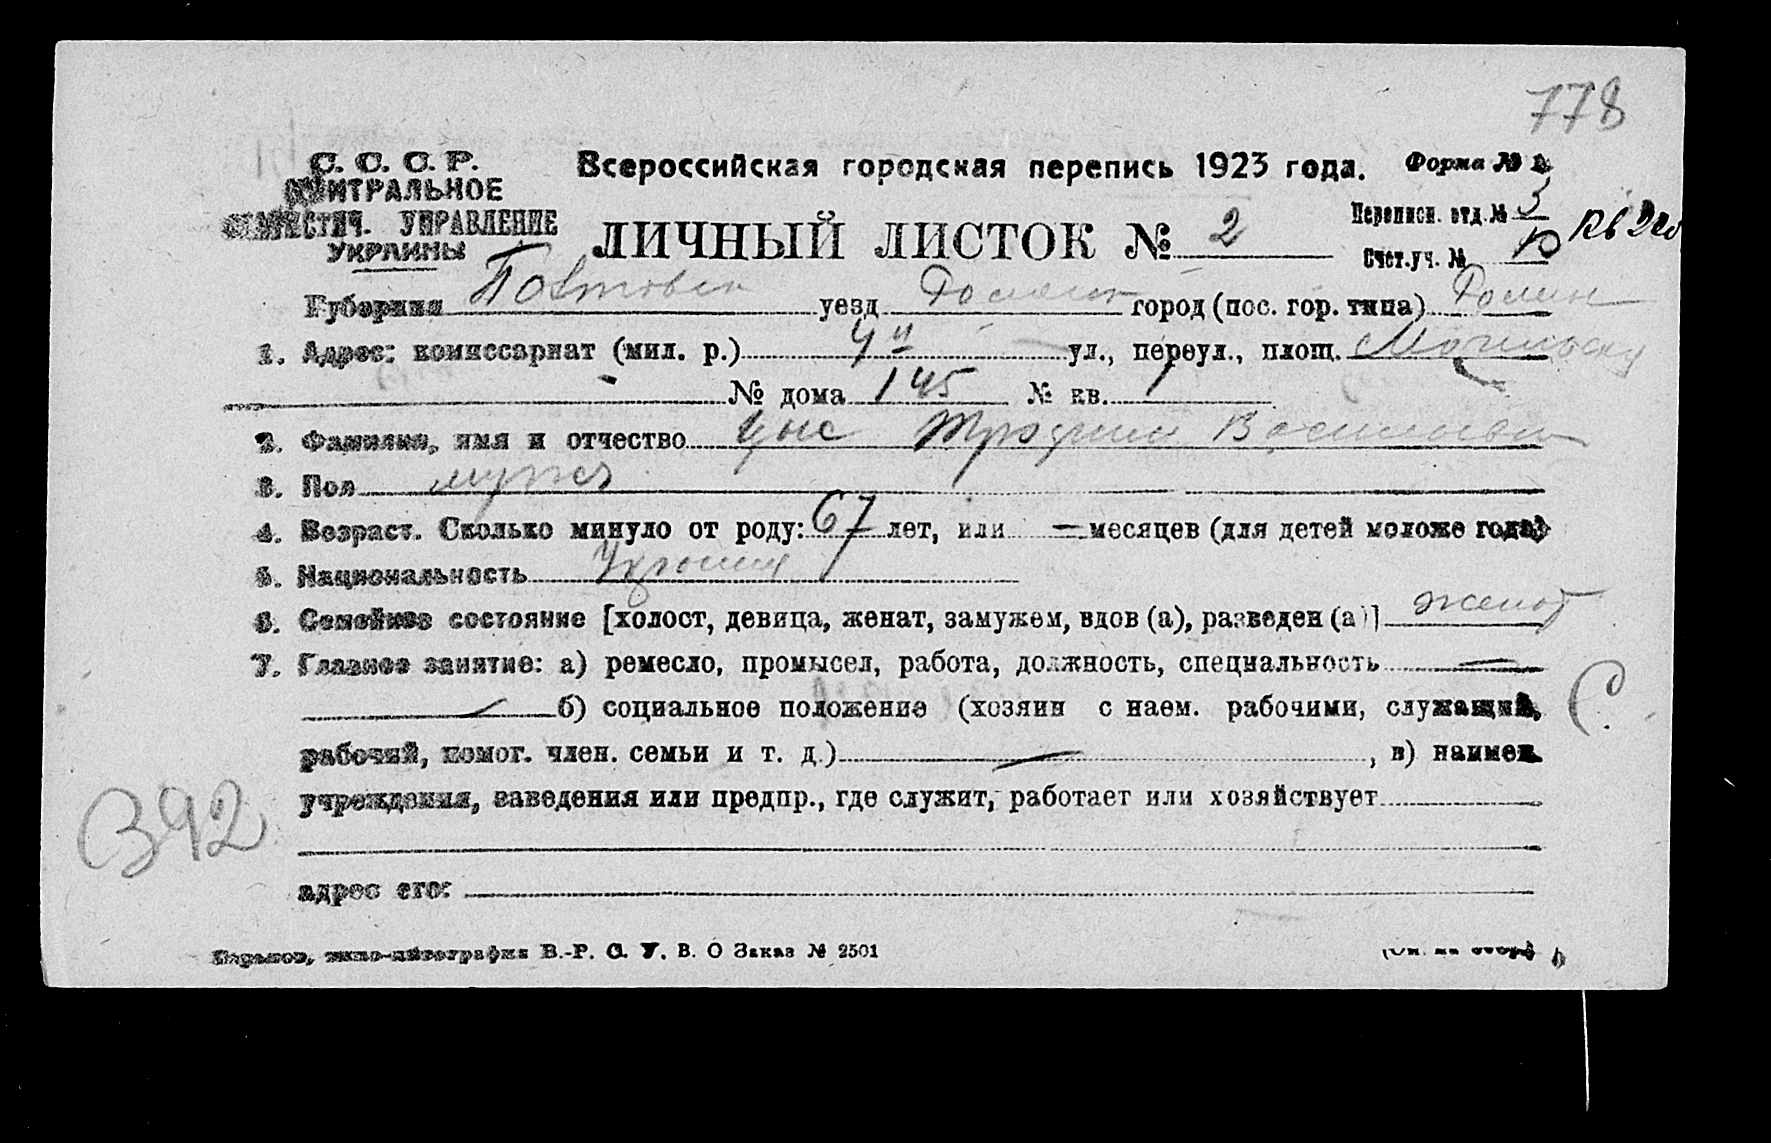 778
С. С. С. Р.
ЦЕНТРАЛЬНОЕ
СТАТИСТИЧ. УПРАВЛЕНИЕ
УКРАИНЫ
Всероссийская городская перепись 1923 года.
Форма №
ЛИЧНЫЙ ЛИСТОК № 2
Переписн. отд. № 3
Счет. уч. №
Губерния уезд город (пос. гор. типа)
1. Адрес: комиссариат (мил. р.) ул., переул., площ.
№ дома 145 № кв. 1
2. Фамилия, имя и отчество
3. Пол муж
4. Возраст. Сколько минуло от роду: 67 лет, или — месяцев (для детей моложе года)
5. Национальность
6. Семейное состояние [холост, девица, женат, замужем, вдов (а), разведен (а)] женат
7. Главное занятие: а) ремесло, промысел, работа, должность, специальность —
— б) социальное положение (хозяин с наем. рабочими, служащий, С.
рабочий, помог. член. семьи и т. д.) — , в) наимен.
учреждения, заведения или предпр., где служит, работает или хозяйствует
392
адрес его:
Харьков, типо-литография В.-Р. С. У. В. О Заказ № 2501